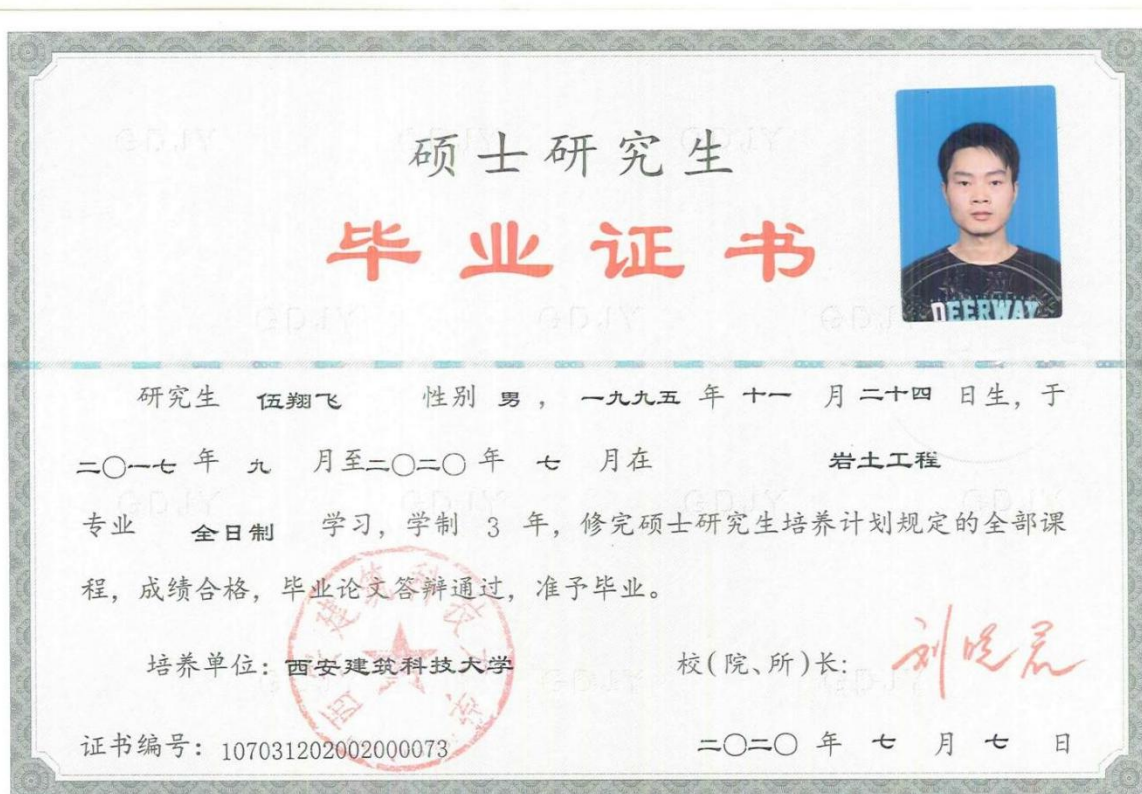 硕士研究生
毕业证书
DEERWAY
研究生 伍翔飞 性别 男 ， 一九九五 年 十一 月 二十四 日生，于
二〇一七 年 九 月至二〇二〇 年 七 月在 岩土工程
专业 全日制 学习，学制 3 年，修完硕士研究生培养计划规定的全部课
程，成绩合格，毕业论文答辩通过，准予毕业。
培养单位：西安建筑科技大学 校(院、所)长: 刘晓君
西安建筑科技大学
证书编号：107031202002000073 二〇二〇 年 七 月 七 日